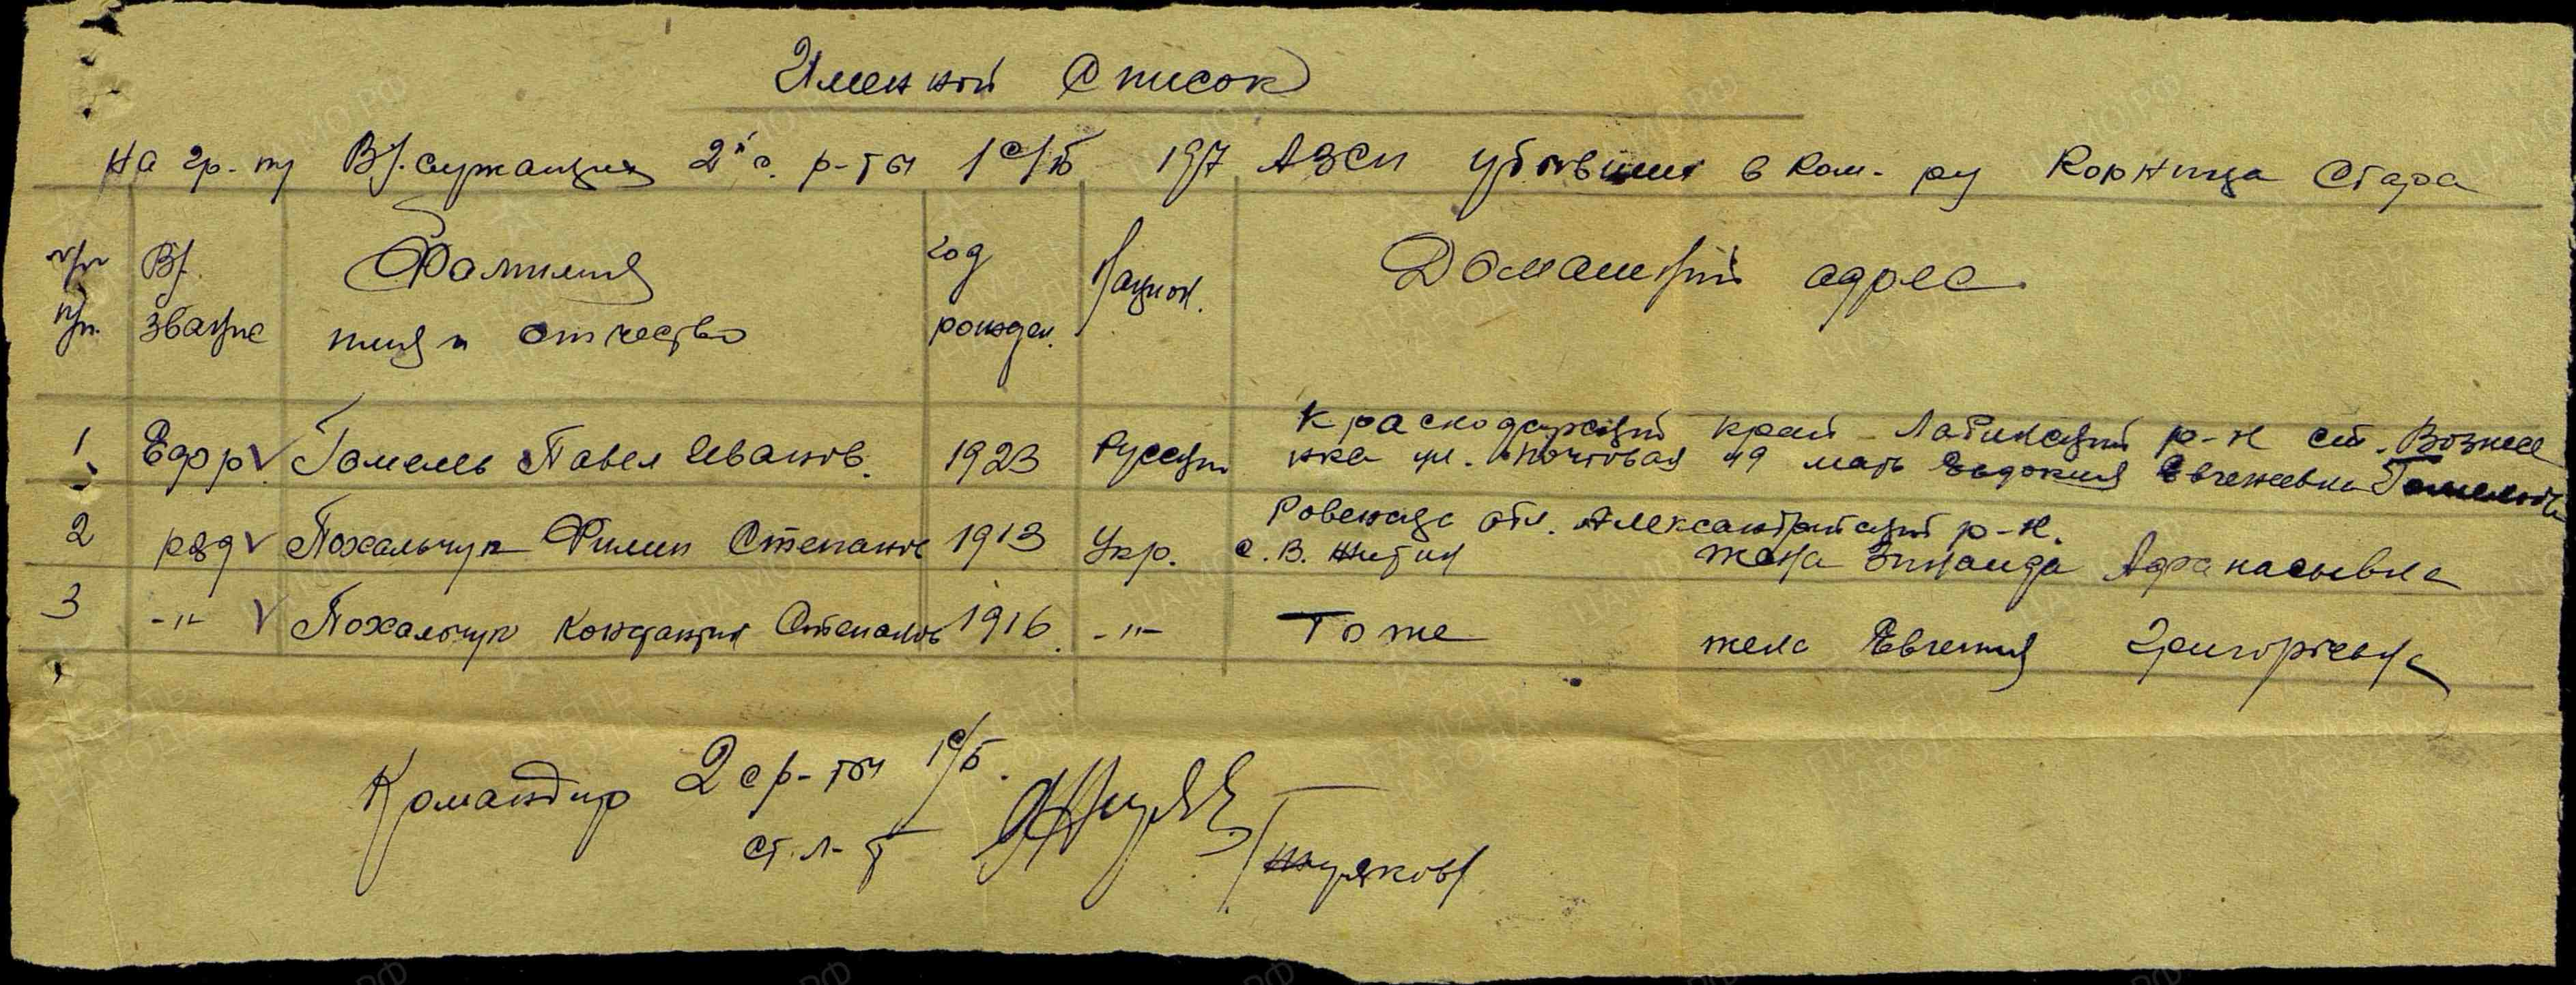 Именной список
на гр. пу В/служащих 2й с. р-ты 1 с/б 197 АЗСП убывших в ком-ру Корница Стара
№/№ В/. Фамилия год Национ. Домашний адрес
п/п. звание имя и отчество рожден.
Краснодарский край Лабинский р-н ст. Вознесе
1. Ефр Гомель Павел Иванов. 1923 Русский нка ул. Почтовая 49 мать Евдокия Евгеневна
Ровенская обл. Александрийский р-н.
2 ряд Похальчук Филип Степанов 1913 Укр. с. В. Житин жена Зинаида Афанасьевна
3 -"- Похальчук Кондантин Степанов 1916. -"- То же жена Евгения Григорьевна
Командир 2 с р-ты 1 с/б.
ст. л-т